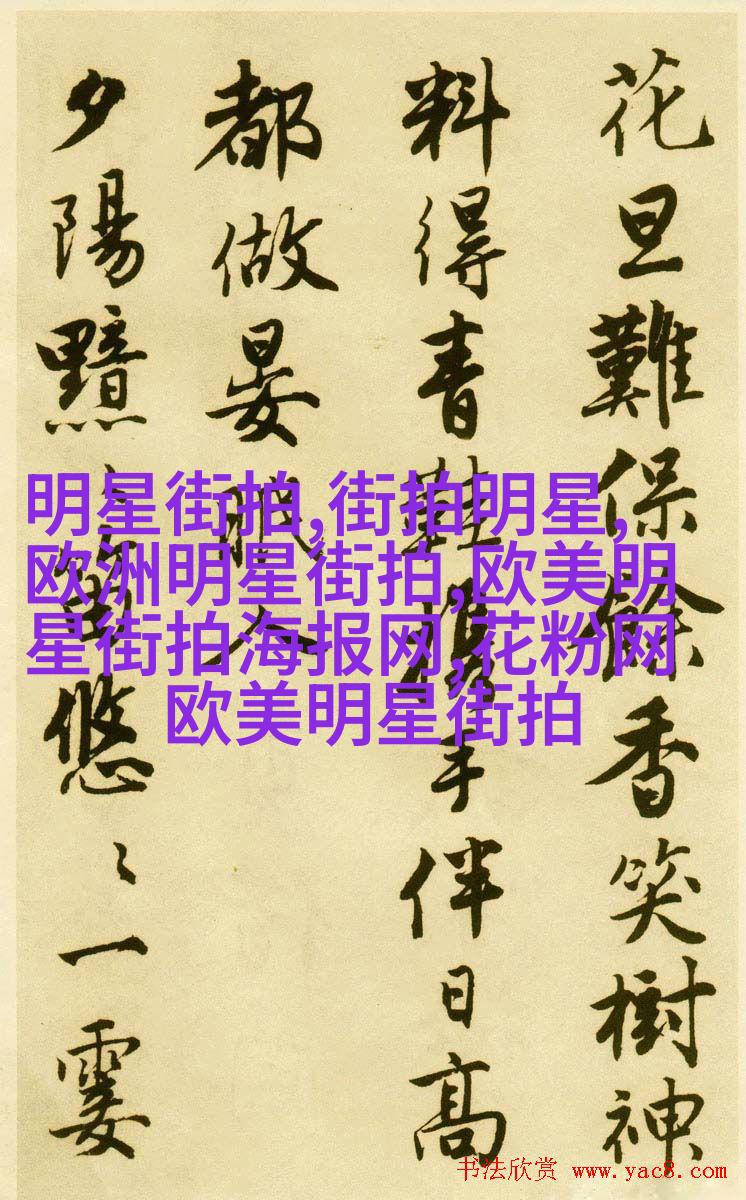 花旦難保餘香笑樹神
料得青鞋攜手伴日高
都做晏眠人
夕陽黯悠〻一霎
明星街拍,街拍明星,
欧洲明星街拍,欧美明
星街拍海报网,花粉网
欧美明星街拍
书法欣赏 www.yac8.com